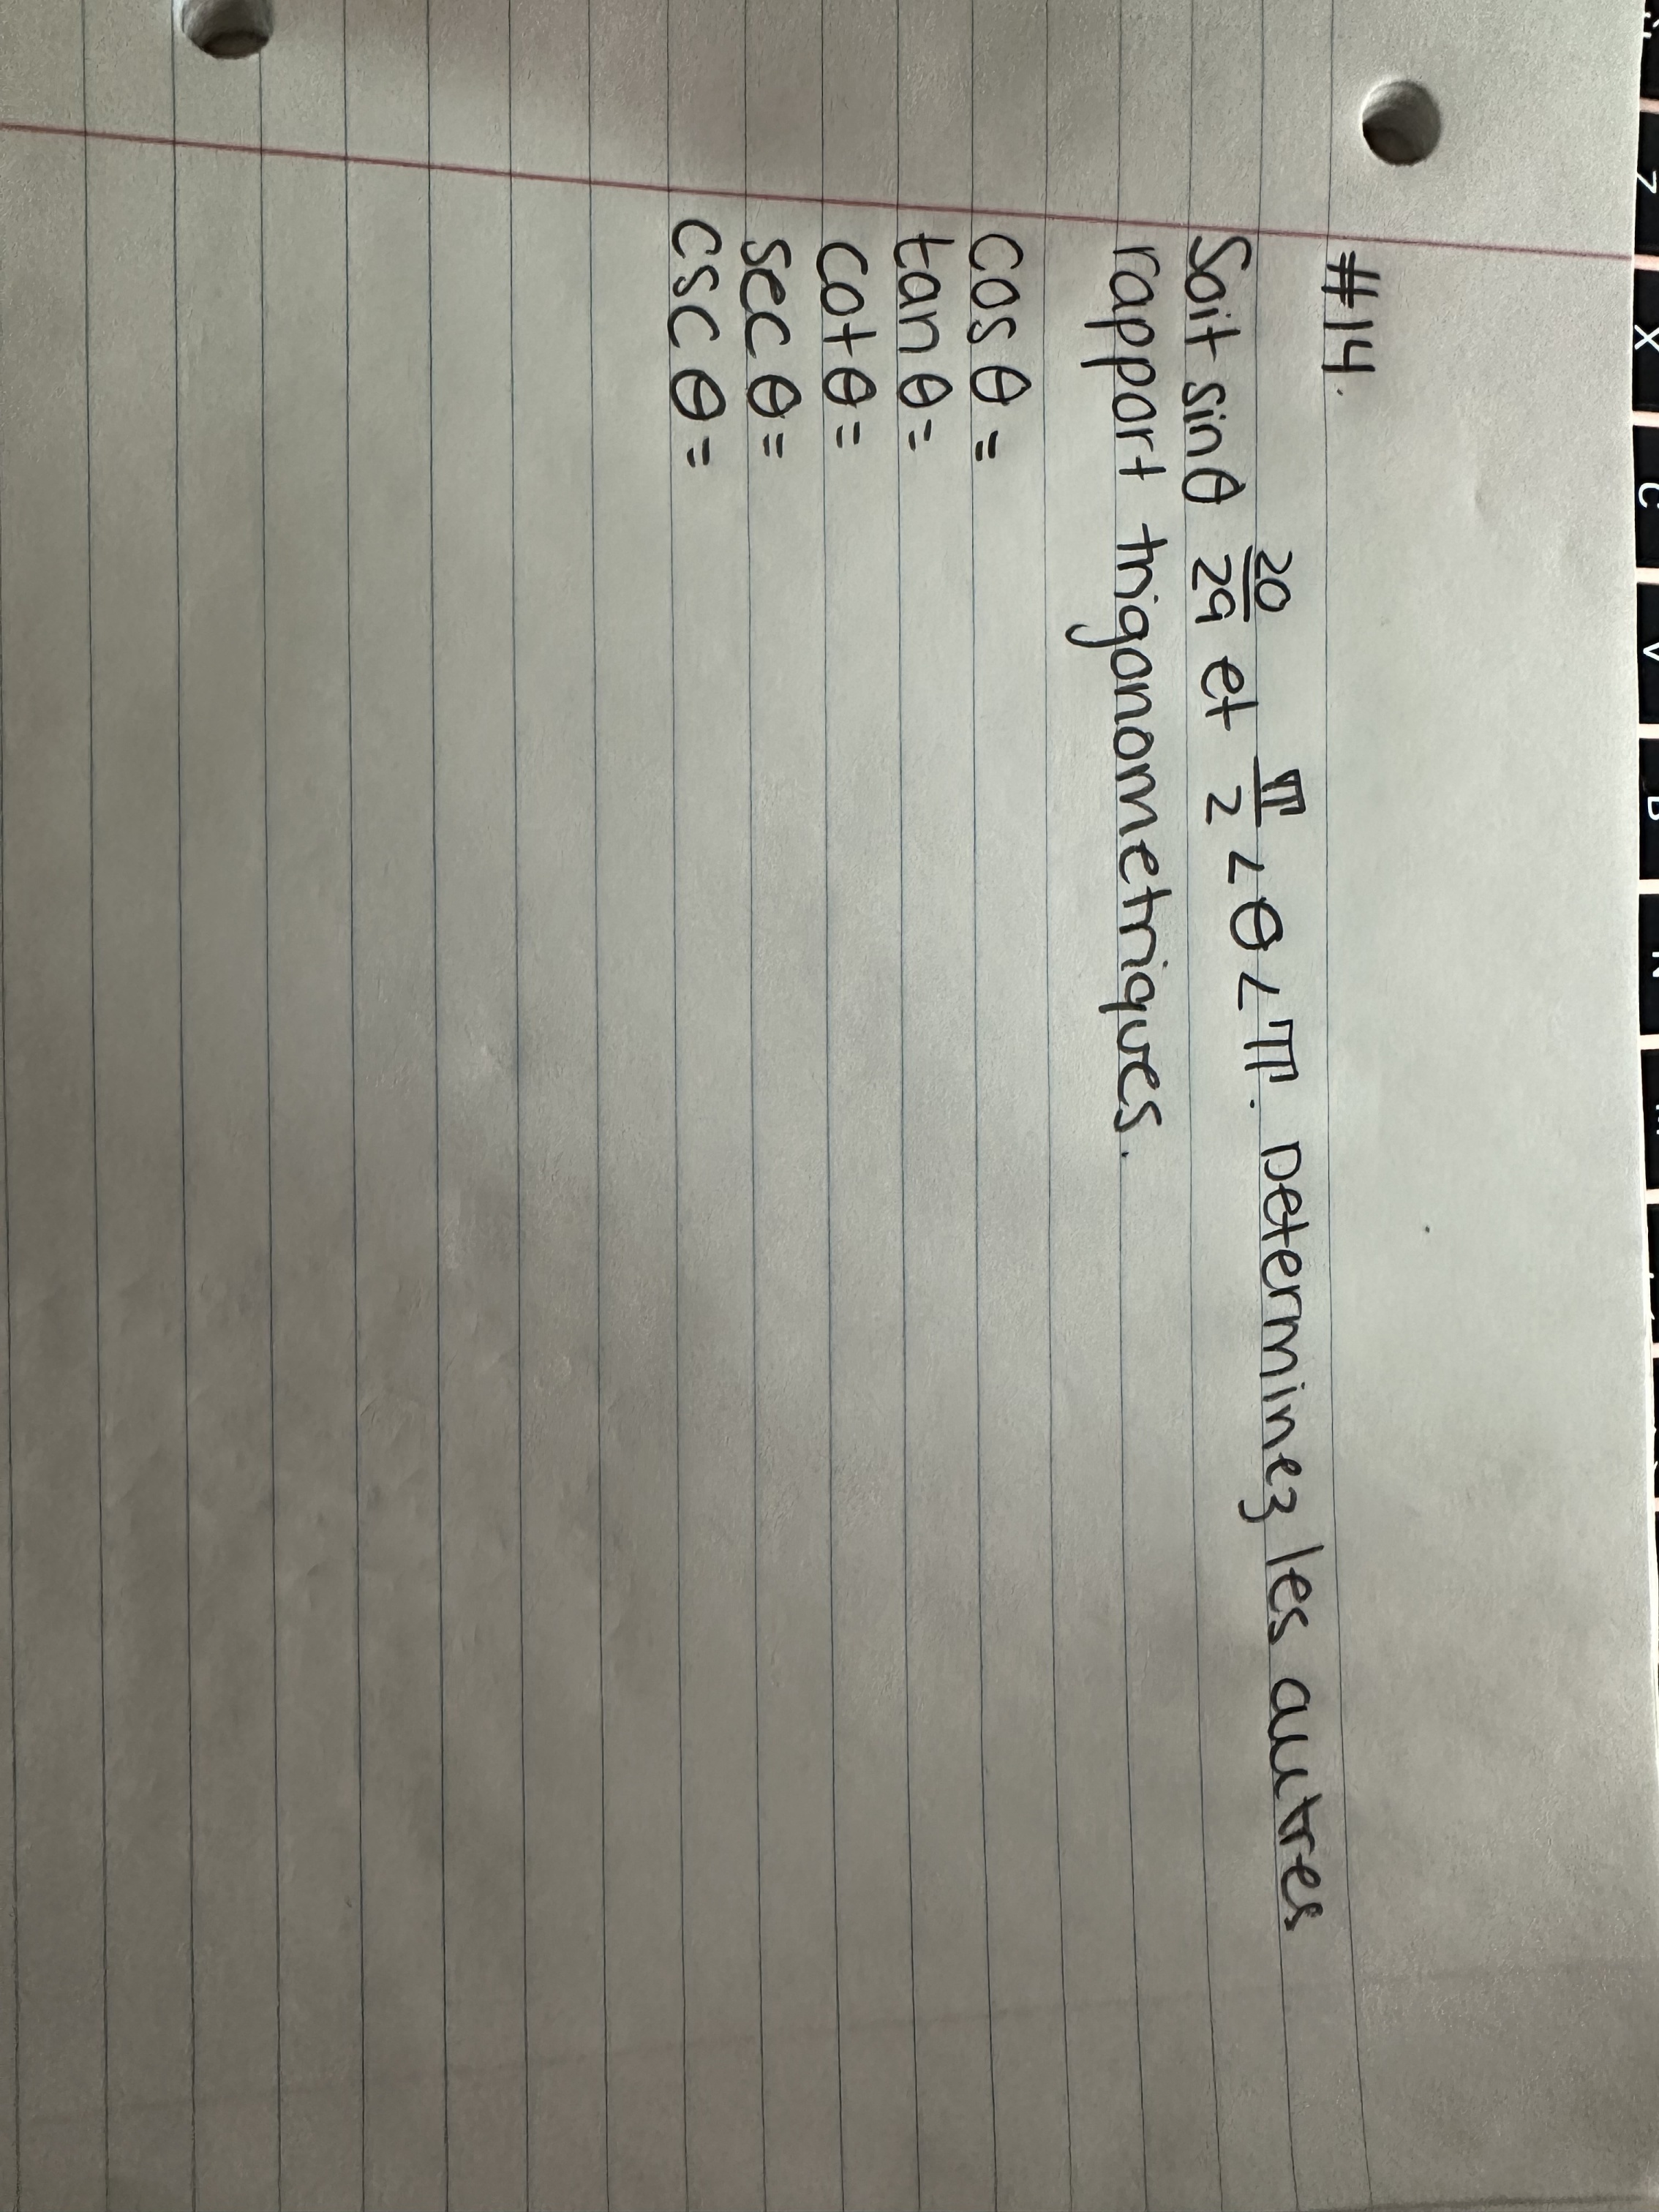 #14.
Soit sinθ 20/29 et π/2 < θ < π. Determinez les autres
rapport trigonometriques.
cos θ =
tan θ =
cot θ =
sec θ =
csc θ =
Z X C V B N M